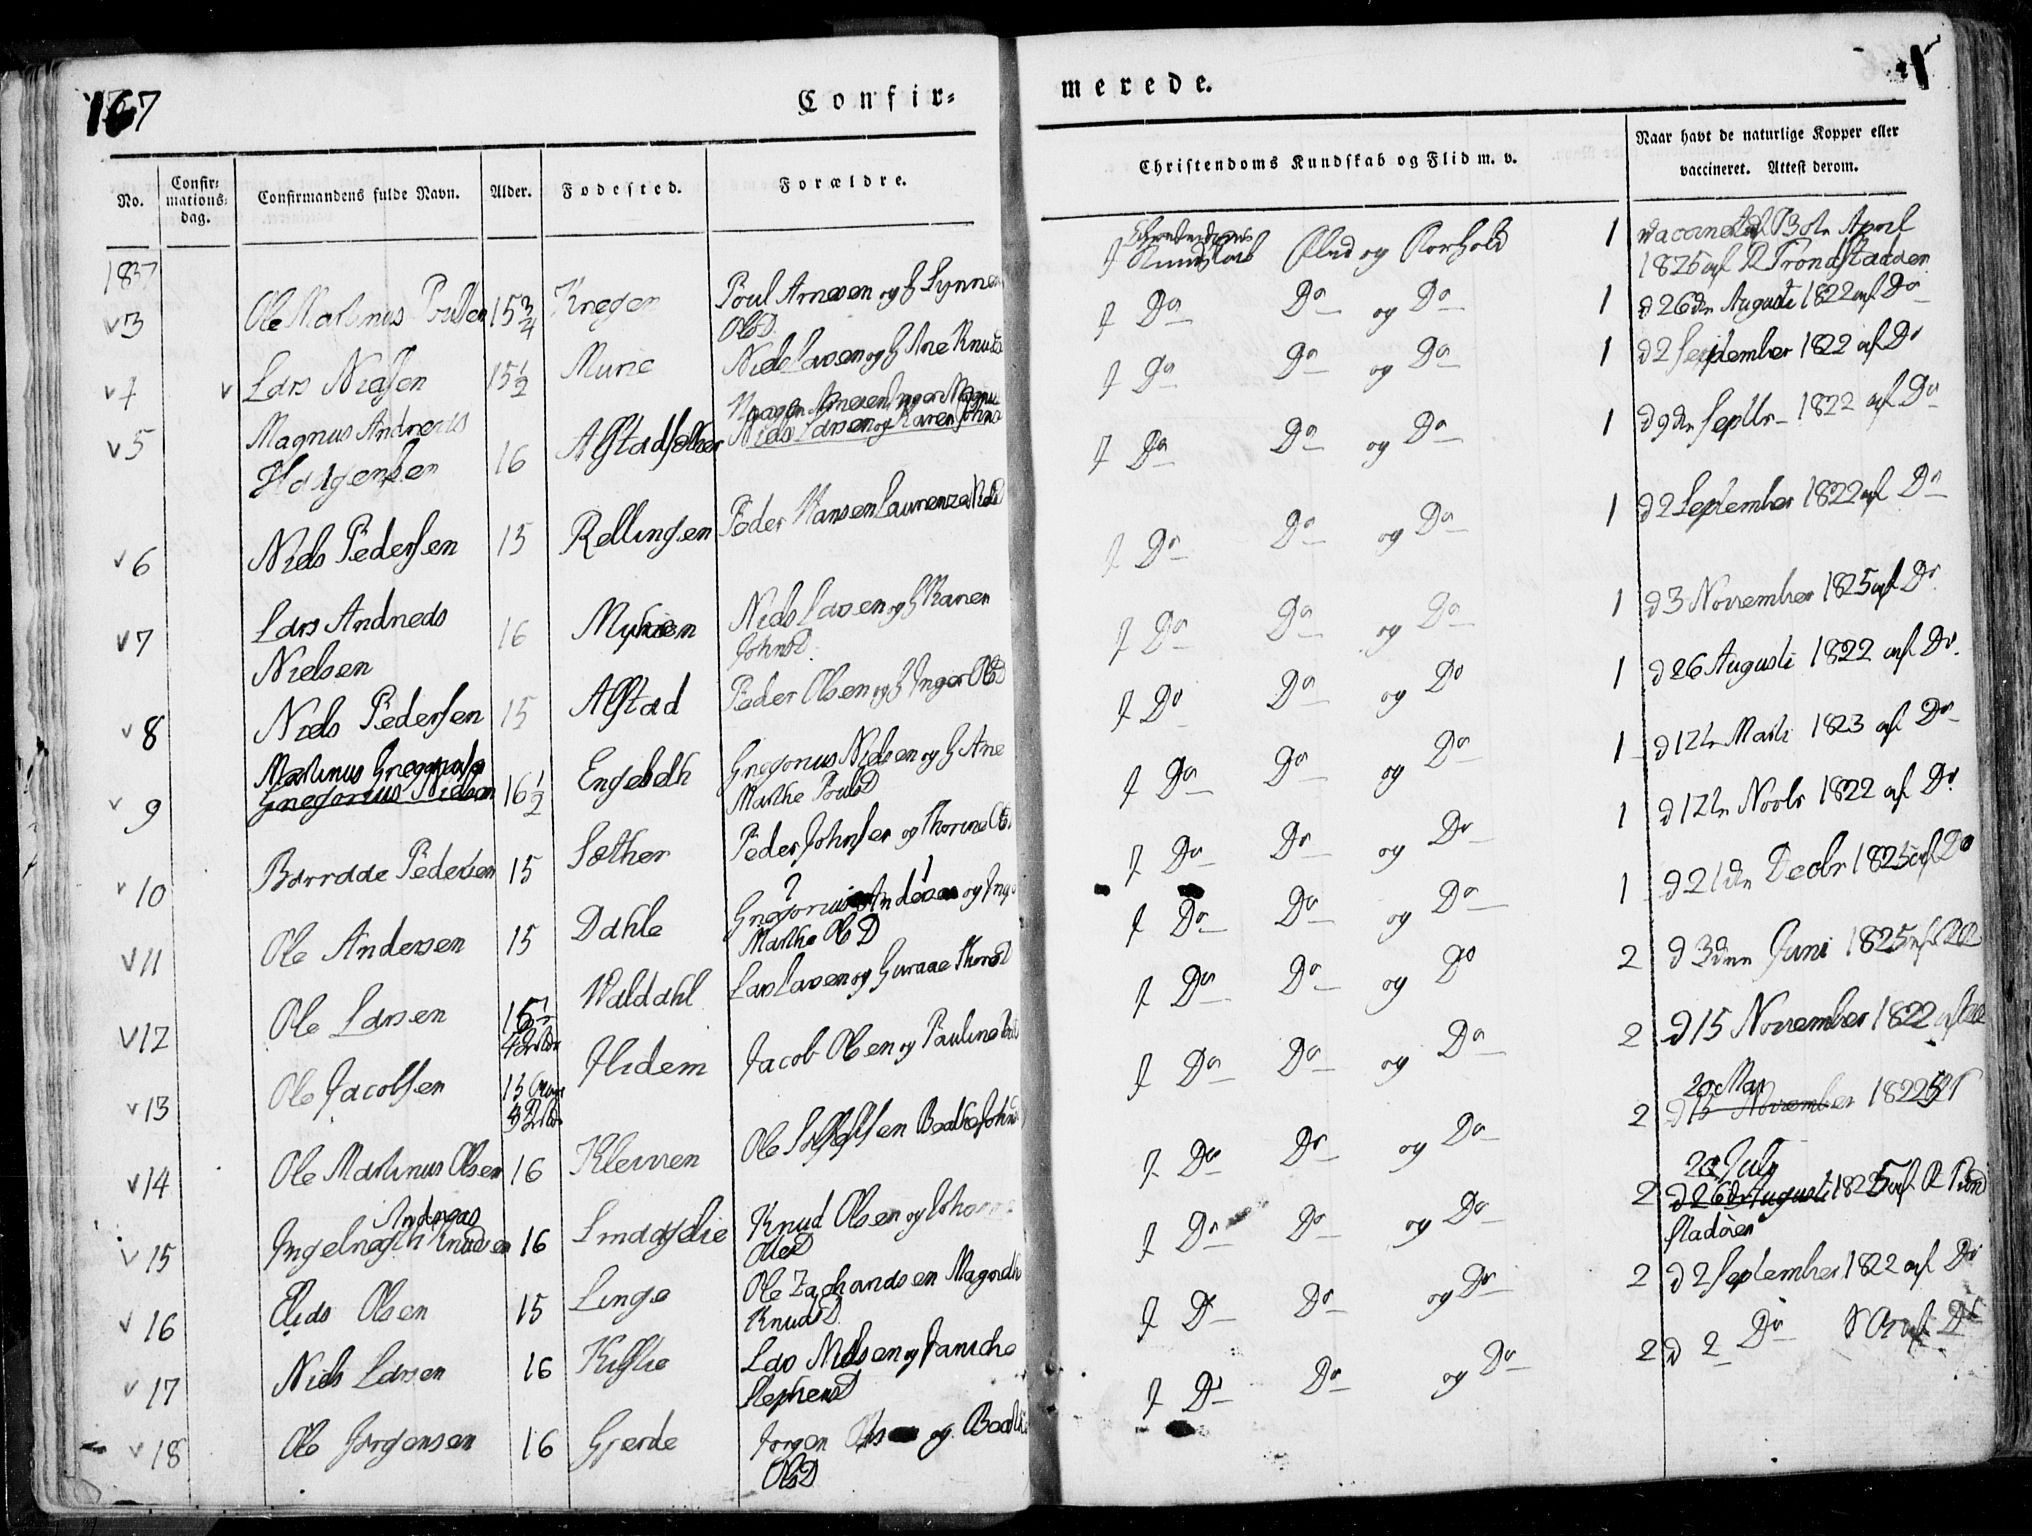 167
Confir=
No.
Confir=
mations=
dag.
Confirmandens fulde Navn.
Alder.
Fødested.
Forældre.
1837
v3 Ole Martinus Poulsen 15 3/4 Kreger Poul Arnesen og H Synneve
OlsD
v4 v Lars Nielsen 15 1/2 Murie Niels Larsen og H Ane Knuds
v5 Magnus Andreas
Haagensen 16 Alstadsæter Haagen Arnesen Inger Magnus
Niels Larsen og Karen Johns
v6 Niels Pedersen 15 Rellingen Peder Hansen Laurenze NielsD
v7 Lars Andreas
Nielsen 16 Myhren Niels Larsen og H Karen
JohnsD
v8 Niels Pedersen 15 Alstad Peder Olsen og H Inger OlsD
v9 Martinus Gregorius
Gregorius Nielsen 16 1/2 Engeseth Gregorius Nielsen og H Ane
Marthe PoulsD
v10 Pedersen 15 Sæther Peder Johnsen og Thorine Ols
v11 Ole Andersen 15 Dahle Gregorius Andersen og Inge
Marthe OlsD
v12 Ole Larsen 15 Valdahl Lars Larsen og Guraae ThorsD
v13 Ole Jacobsen 15 Ilidem Jacob Olsen og Pauline
v14 Ole Martinus Olsen 16 Kleiven Ole Beathe Johns
v15 Andreas
Ingebregth Knudsen 16 Smaagelie Knud Olsen og Johanne
OlsD
v16 Elias Olsen 15 Linge Ole Zachariasen Magnild
KnudsD
v17 Niels Larsen 16 Kilstie Lars Nielsen og Janiche
StephensD
v18 Ole Jørgensen 16 Gjerde Jørgen og Beathe
OlsD
merede.
Christendoms Kundskab og Flid m. v.
Naar havt de naturlige Kopper eller
vaccineret. Attest derom.
I Christendoms
Kundskab Flid og Forhold 1 vaccineret d 30te April
1825 af R Trondstadøen
I Do Do og Do 1 d 26de Augusti 1822 af Do
I Do Do og Do 1 d 2 September 1822 af Do
I Do Do og Do 1 d 9de Septbr 1822 af Do
I Do Do og Do 1 d 2 September 1822 af Do
I Do Do og Do 1 d 3 November 1825 af Do
I Do Do og Do 1 d 26 Augusti 1822 af Do
I Do Do og Do 1 d 12te Marti 1823 af Do
I Do Do og Do 1 d 12te Novbr 1822 af Do
I Do Do og Do 1 d 21de Decbr 1825 af Do
I Do Do og Do 2 d 3den Juni 1825 af
I Do Do og Do 2 d 15 November 1822 af
I Do Do og Do 2 20 Mai
d 15 November 1822
I Do Do og Do 2 20 July
d 26de Augusti 1825 af R Trond
stadøen
I Do Do og Do 2 d 2 September 1822 af Do
I Do Do og Do 2 d 2 Do af Do